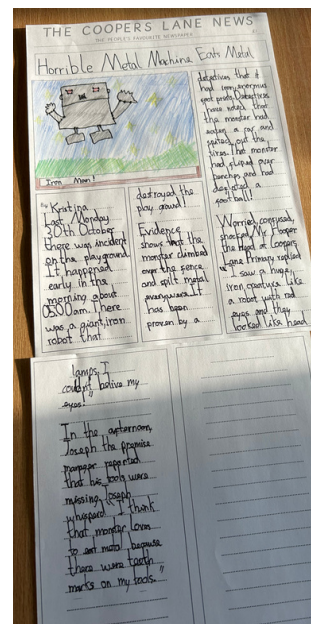 THE COOPERS LANE NEWS
THE PEOPLE'S FAVOURITE NEWSPAPER
Horrible Metal Machine Eats Metal
Iron Man!
By Kristina
Last Monday
30th October
there was incident
on the playground.
It happened
early in the
morning about
05:00 am. There
was a giant, iron
robot that
destroyed the
play ground!
Evidence
shows that the
monster climbed
over the fence
and spilt metal
everywere. It
has been
proven by a
detectives that it
had enormous
foot prints. Detectives
have noted that
the monster had
eaten a car and
spitted out the
tires. That monster
had fliped over
benches and had
a
football!
Worried, confused,
shocked Mr Hooper
the Head of Coopers
Lane Primary replied
"I saw a huge,
iron creature like
a robot with red
eyes and they
looked like head
lamps. I
couldn't belive my
eyes!"
In the afternoon,
Joseph the premise
manager reported
that his tools were
missing. Joseph
whisperd "I think
that monster loves
to eat metal because
there were teeth
marks on my tools."